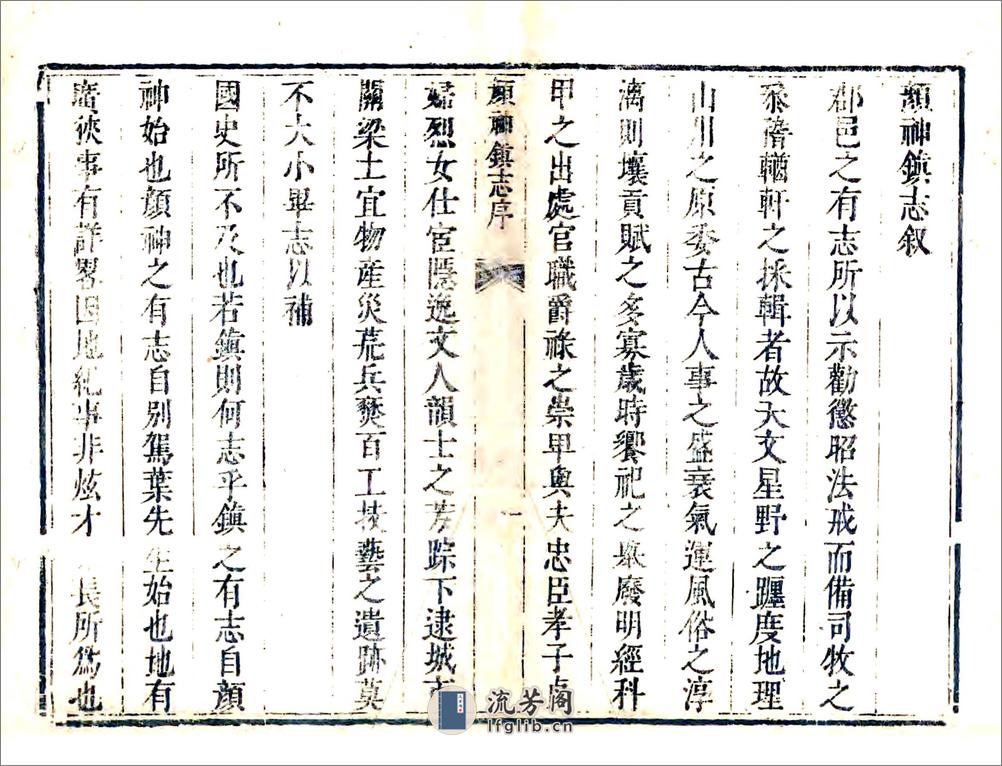 顏神鎮志叙
郡邑之有志所以示勸懲昭法戒而備司牧之
叅稽輶軒之採輯者故天文星野之躔度地理
山川之原委古今人事之盛衰氣運風俗之淳
漓則壤貢賦之多寡歲時饗祀之舉廢明經科
甲之出處官職爵祿之崇卑與夫忠臣孝子貞
顏神鎮志序
一
婦烈女仕宦隱逸文人韻士之芳踪下逮城市
關梁土宜物產災荒兵燹百工技藝之遺跡莫
不大小畢志以補
國史所不及也若鎮則何志乎鎮之有志自顏
神始也顏神之有志自别駕葉先生始也地有
廣狹事有詳畧因地紀事非炫才 長所爲也
流芳閣
lfglib.cn